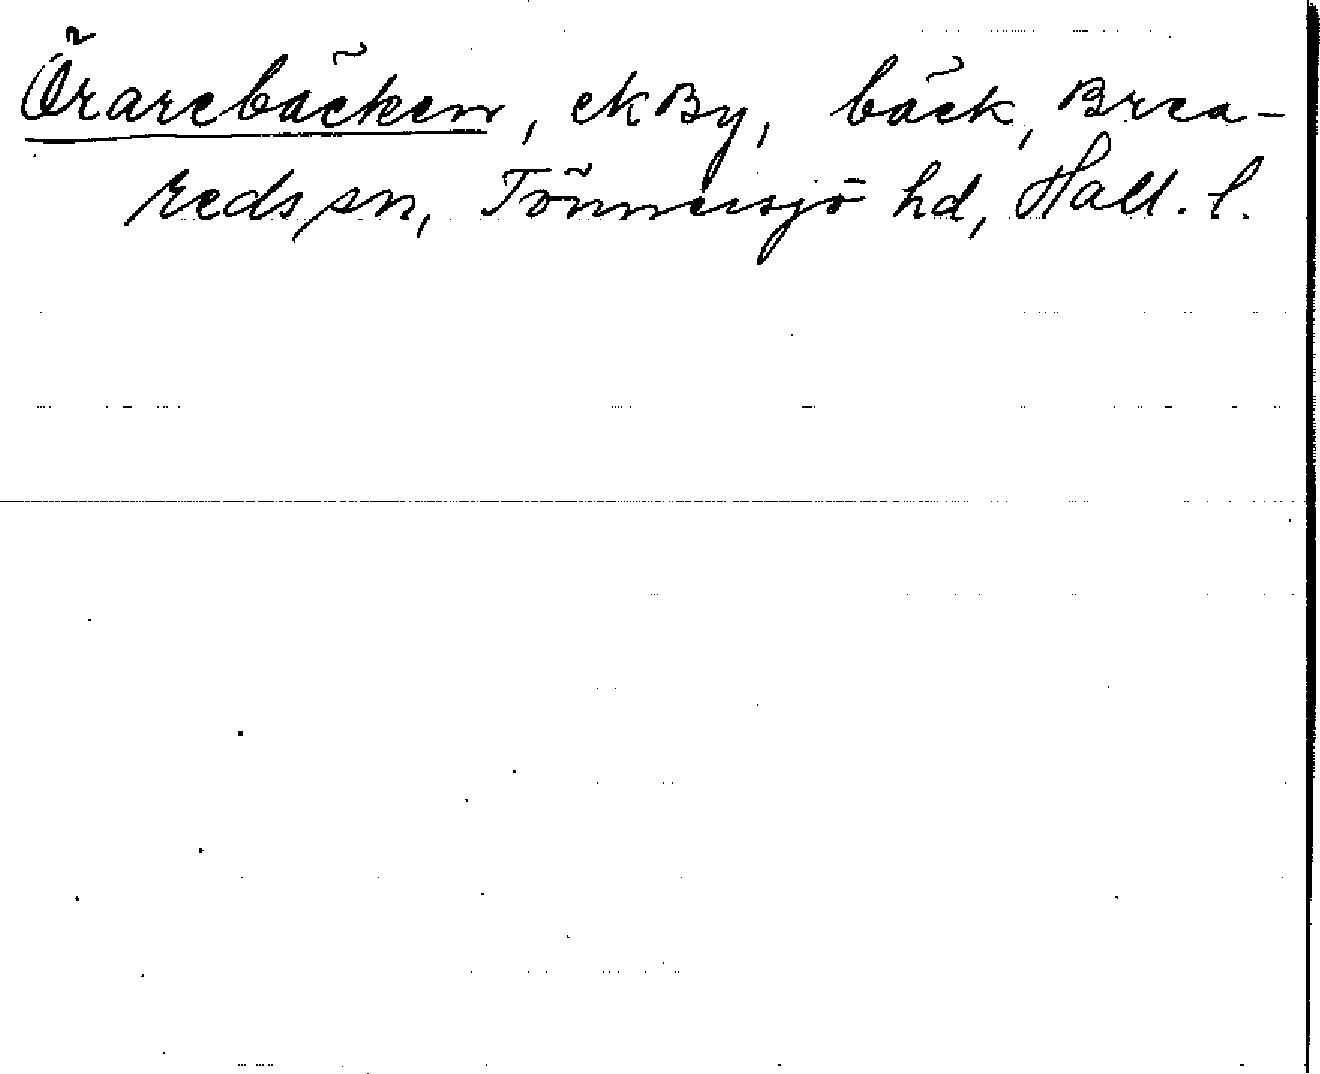 Örarebäcken, ekBy, bäck, Brea-
reds sn, Tönnersjö hd, Hall. l.